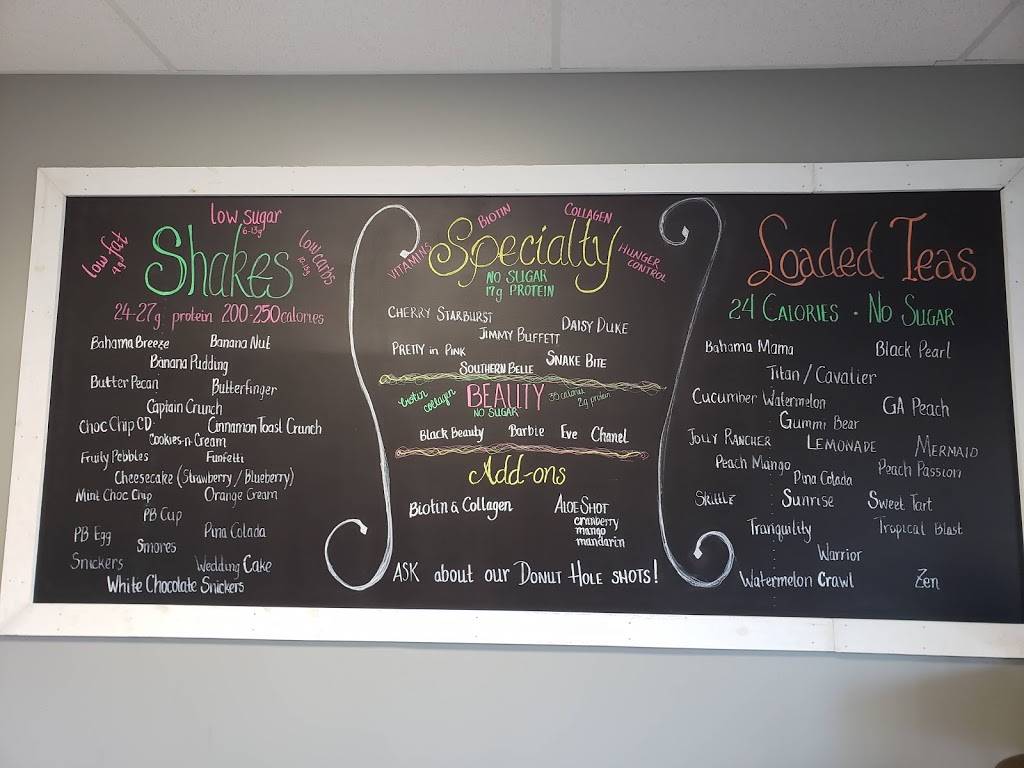 low sugar
6-13g
low fat
4g
Shakes
low carbs
24-27g protein 200-250 calories
Bahama Breeze Banana Nut
Banana Pudding
Butter Pecan Butterfinger
Captain Crunch
Choc Chip CD Cinnamon Toast Crunch
Cookies-n-Cream
Fruity Pebbles Funfetti
Cheesecake (Strawberry / Blueberry)
Mint Choc Chip Orange Cream
PB Cup
PB Egg Pina Colada
Smores
Snickers Wedding Cake
White Chocolate Snickers
VITAMINS
BIOTIN
COLLAGEN
HUNGER
CONTROL
Specialty
NO SUGAR
17g PROTEIN
CHERRY STARBURST DAISY DUKE
JIMMY BUFFETT
PRETTY in PINK SNAKE BITE
SOUTHERN BELLE
biotin
collagen
BEAUTY
NO SUGAR
35 calories
2g protein
Black Beauty Barbie Eve Chanel
Add-ons
Biotin & Collagen ALOE SHOT
cranberry
mango
mandarin
ASK about our DONUT HOLE SHOTS!
Loaded Teas
24 CALORIES · NO SUGAR
Bahama Mama Black Pearl
Titan / Cavalier
Cucumber Watermelon GA Peach
Gummi Bear
JOLLY RANCHER LEMONADE MERMAID
Peach Mango Peach Passion
Pina Colada
Skittlz Sunrise Sweet Tart
Tranquility Tropical Blast
Warrior
Watermelon Crawl Zen